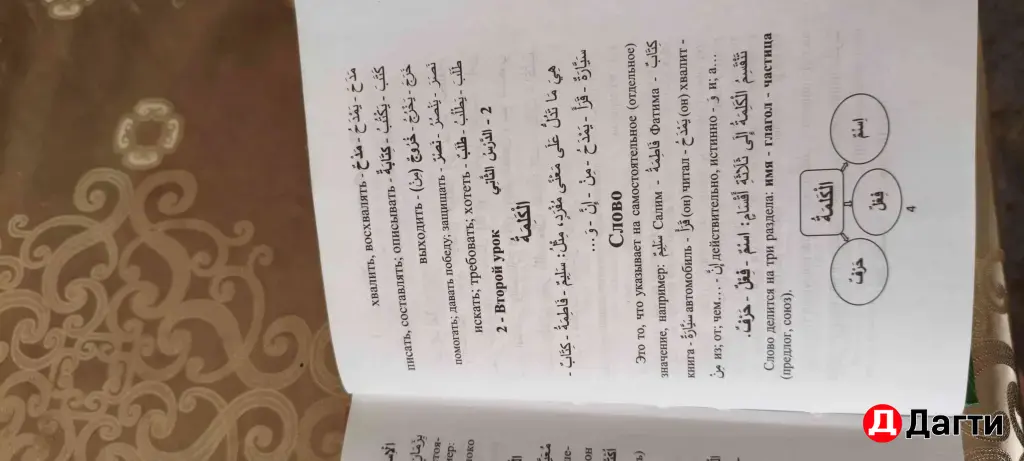 хвалить, восхвалять - مَدَحَ - يَمْدَحُ - مَدْحٌ
писать, составлять; описывать - كَتَبَ - يَكْتُبُ - كِتَابَةٌ
выходить - خَرَجَ - يَخْرُجُ - خُرُوجٌ (مِنْ)
помогать; давать победу; защищать - نَصَرَ - يَنْصُرُ - نَصْرٌ
искать; требовать; хотеть - طَلَبَ - يَطْلُبُ - طَلَبٌ
2 - Второй урок الدَّرْسُ الثَّانِي - 2
الْكَلِمَةُ
هِيَ مَا تَدُلُّ عَلَى مَعْنًى مُفْرَدٍ، مِثْلُ: سَلِيمٌ - فَاطِمَةُ - كِتَابٌ -
سَيَّارَةٌ - قَرَأَ - يَمْدَحُ - مِنْ - إِنَّ - وَ...
Слово
Это то, что указывает на самостоятельное (отдельное)
значение, например: سَلِيمٌ Салим - فَاطِمَةُ Фатима - كِتَابٌ
книга - سَيَّارَةٌ автомобиль - قَرَأَ (он) читал - يَمْدَحُ (он) хвалит -
مِنْ из; от; чем... - إِنَّ действительно, истинно - وَ и; а...
تَنْقَسِمُ الْكَلِمَةُ إِلَى ثَلَاثَةِ أَقْسَامٍ: اِسْمٌ - فِعْلٌ - حَرْفٌ.
Слово делится на три раздела: имя - глагол - частица
(предлог, союз).
الْكَلِمَةُ
اِسْمٌ
فِعْلٌ
حَرْفٌ
4
Дагти